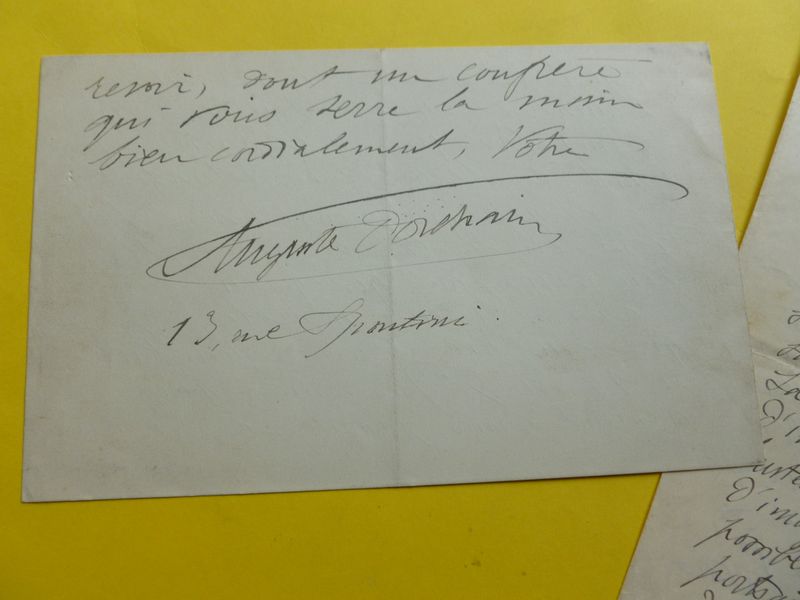 revoir, dont un confrère
qui vous serre la main
bien cordialement, Votre
Auguste Dorchain
13, rue Spontini.
La
D'i
D'im
possible